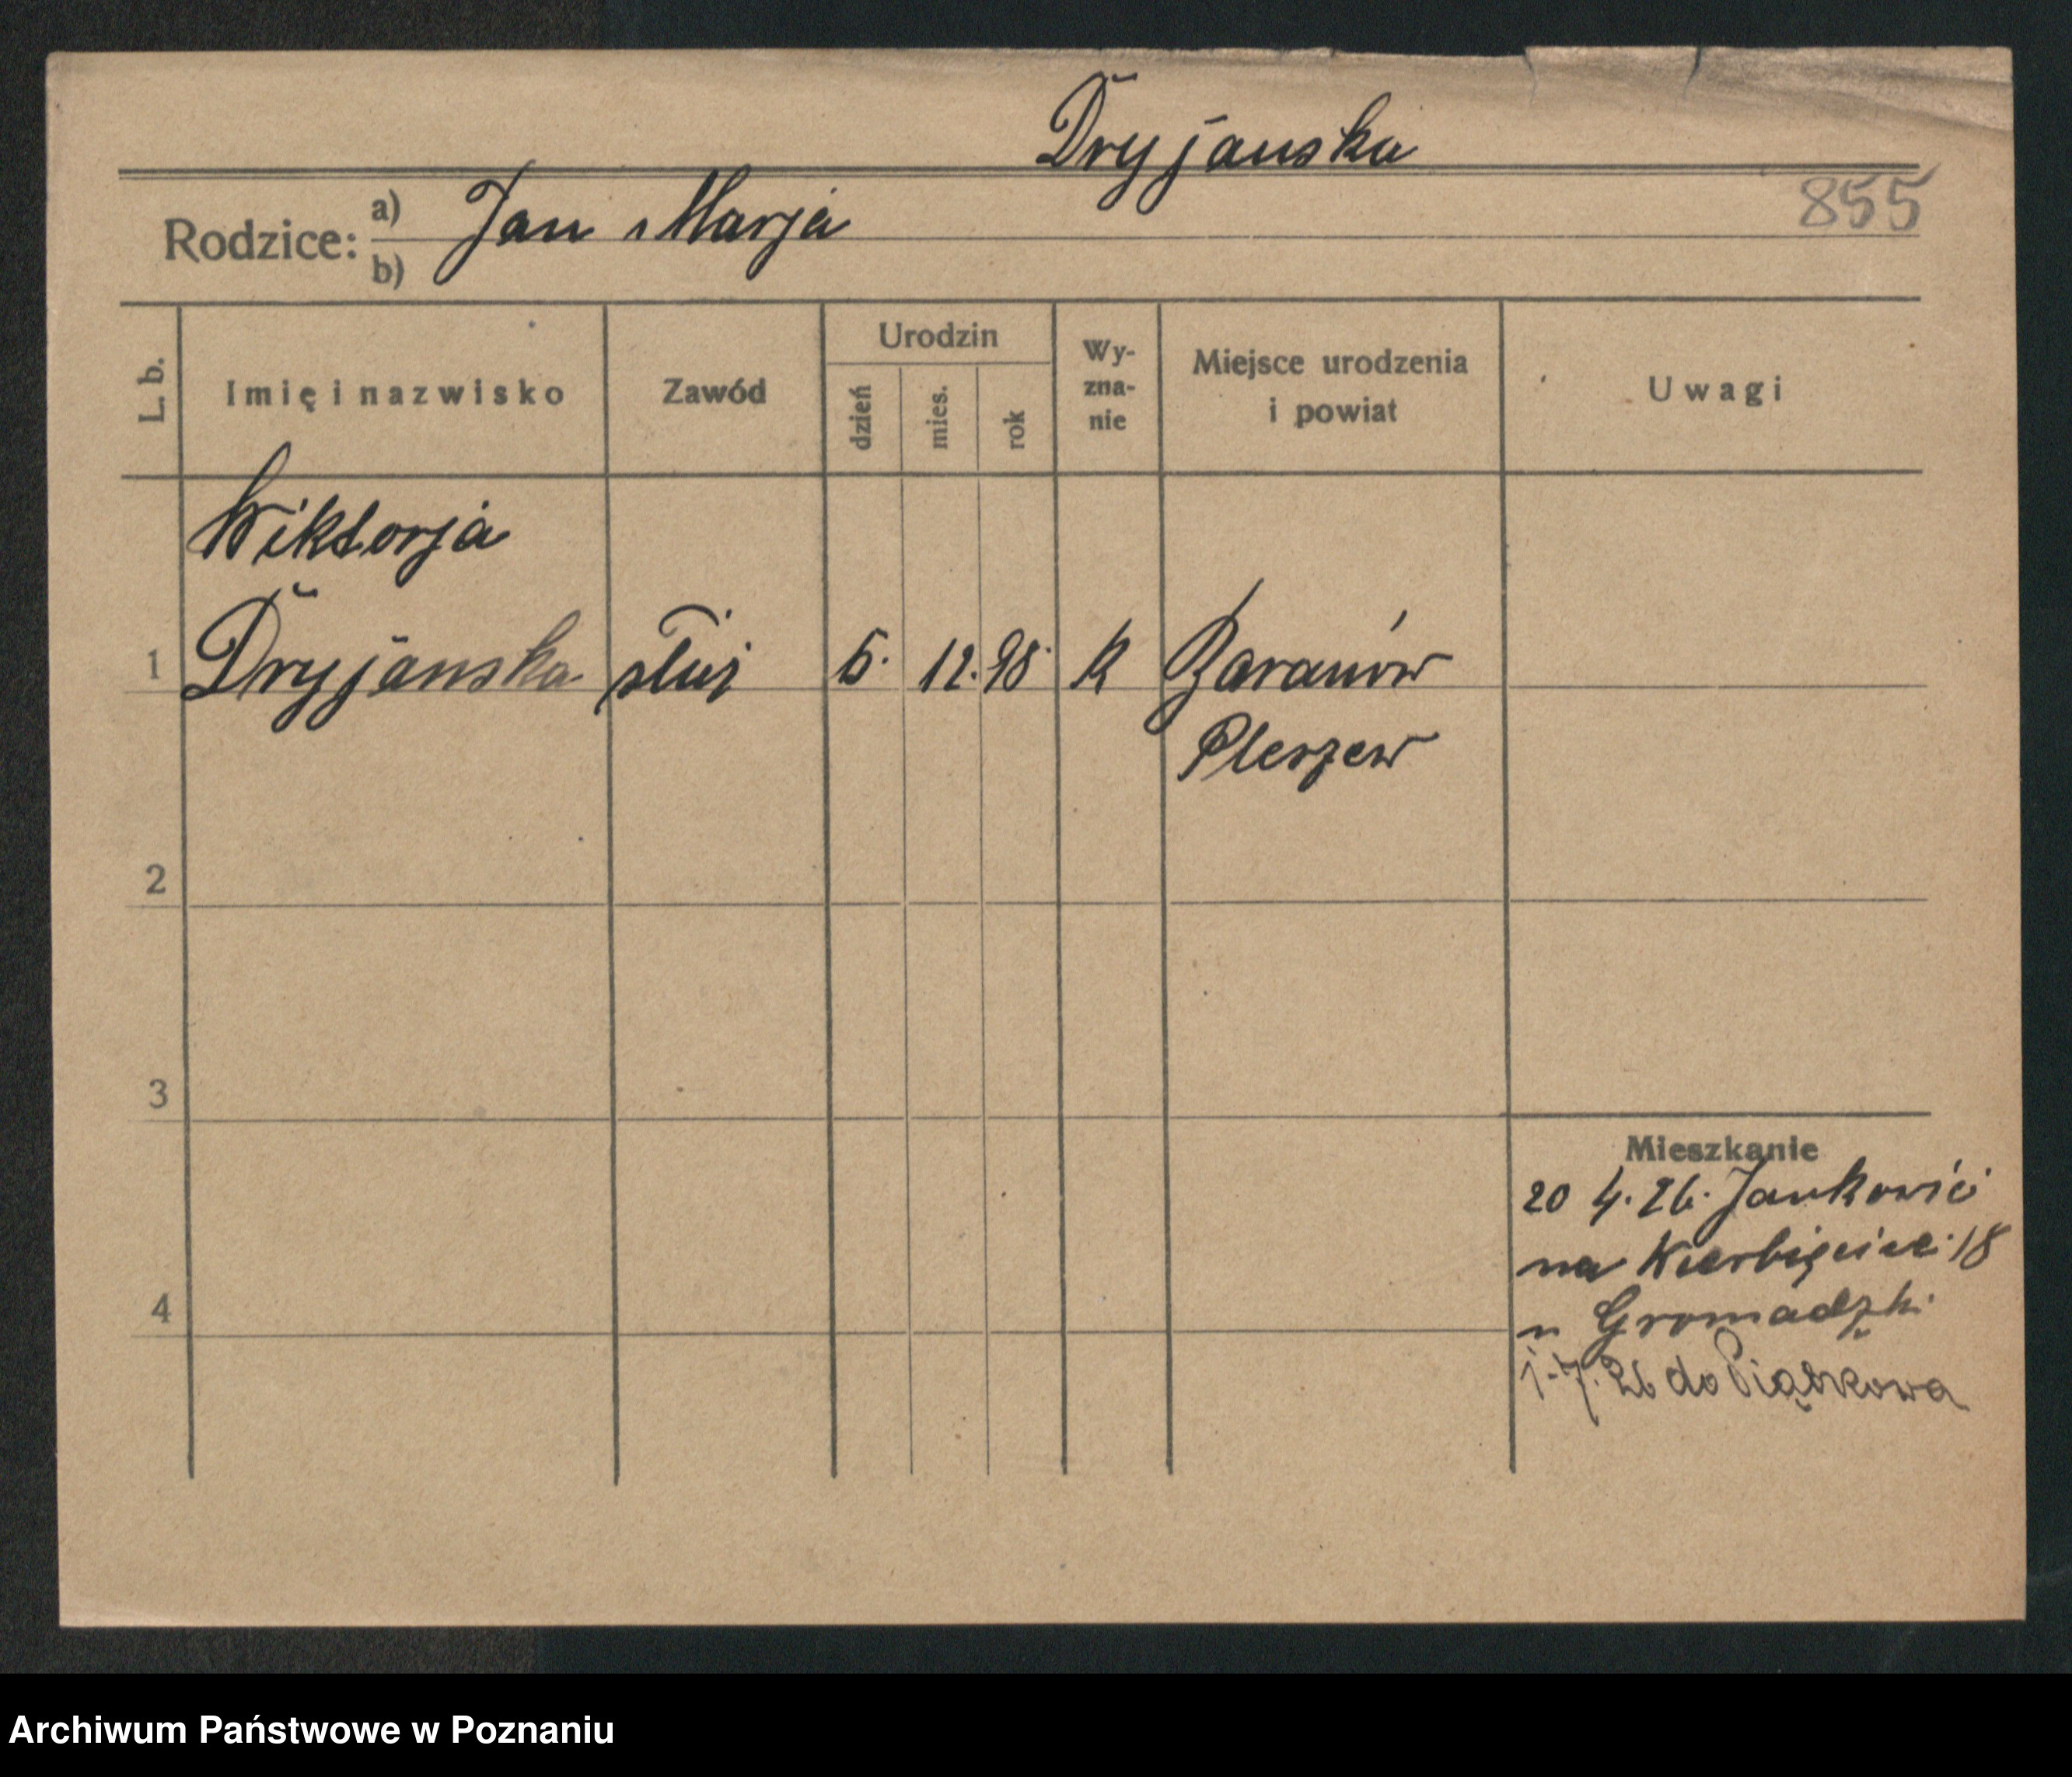 Dryjanska
855
Rodzice: a) Jan Marja
b)
L. b. Imię i nazwisko Zawód Urodzin dzień mies. rok Wy-zna-nie Miejsce urodzenia i powiat Uwagi
Wiktorja
1 Dryjanska służ 6. 12. 98 K Baranów
Pleszew
2
3
4
Mieszkanie
20 4. 26.
na Wierbięcice 18
u Gromadzki
1-7. 26 do Piątkowa
Archiwum Państwowe w Poznaniu